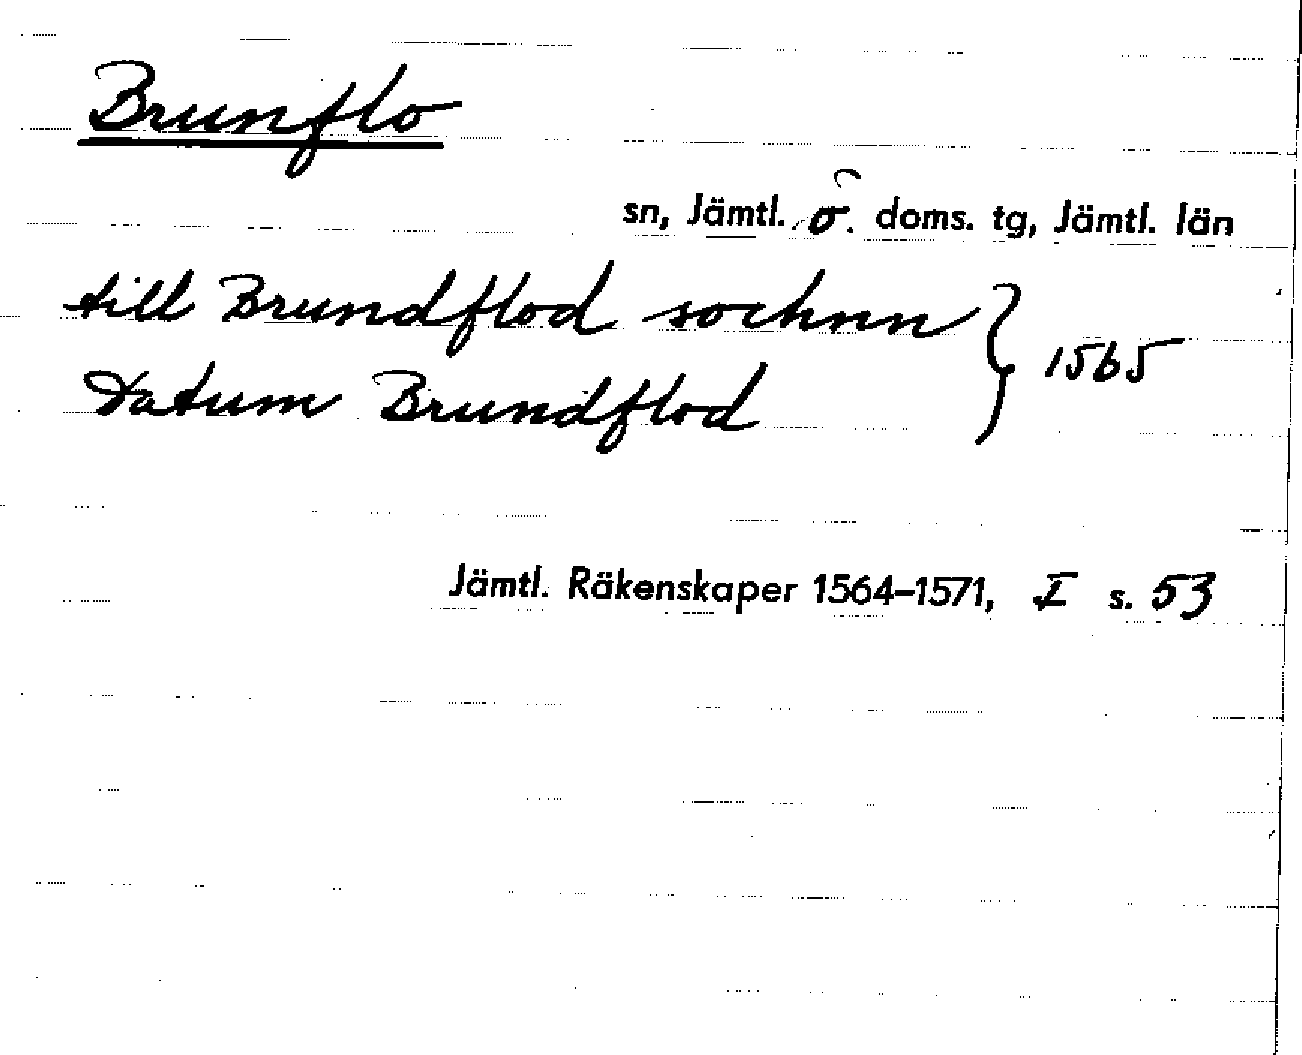 Brunflo
sn, Jämtl. ö. doms. tg, Jämtl. län
till Brundflod sochnn } 1565
Datum Brundflod
Jämtl. Räkenskaper 1564–1571, I s. 53